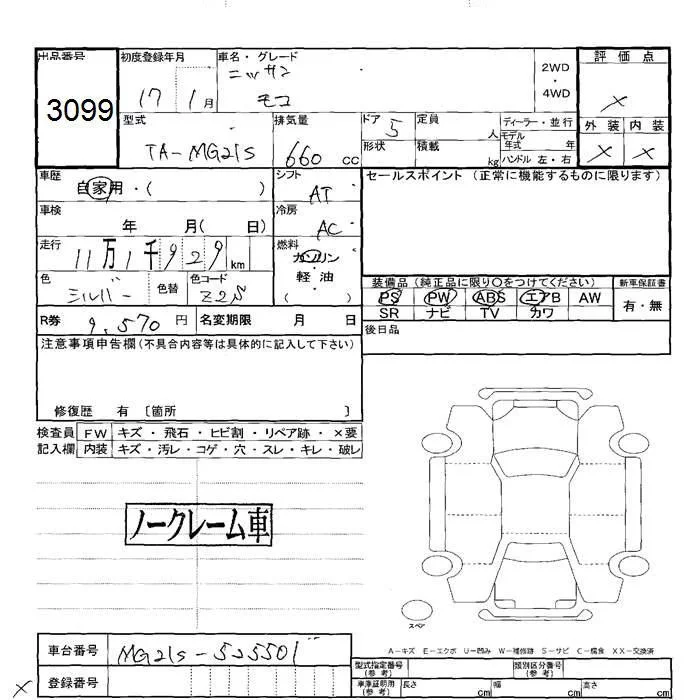 出品番号 初度登録年月 車名・グレード 評価点
3099 17 1月 ニッサン モコ 2WD・4WD ×
型式 排気量 ドア 定員 人 ディーラー・並行 外装 内装
TA-MG21S 660cc 5 形状 積載 kg モデル年式 年 × ×
ハンドル 左・右
車歴 シフト セールスポイント(正常に機能するものに限ります)
自家用・( ) AT
車検 年 月( 日) 冷房 AC
走行 11万1千929km 燃料 ガソリン
軽・油
( )
色 シルバー 色替 色コード Z2S
装備品(純正品に限り○をつけてください) 新車保証書
PS PW ABS エアB AW 有・無
SR ナビ TV カワ
R券 9,570円 名変期限 月 日 後日品
注意事項申告欄(不具合内容等は具体的に記入して下さい)
修復歴 有 [箇所 ]
検査員 FW キズ・飛石・ヒビ割・リペア跡・×要
記入欄 内装 キズ・汚レ・コゲ・穴・スレ・キレ・破レ
ノークレーム車
スペア
A-キズ E-エクボ U-凹み W-補修跡 S-サビ C-腐食 XX-交換済
車台番号 MG21S-525501
× 登録番号
型式指定番号(参考) 類別区分番号(参考)
車庫証明用(参考) 長さ cm 幅 cm 高さ cm